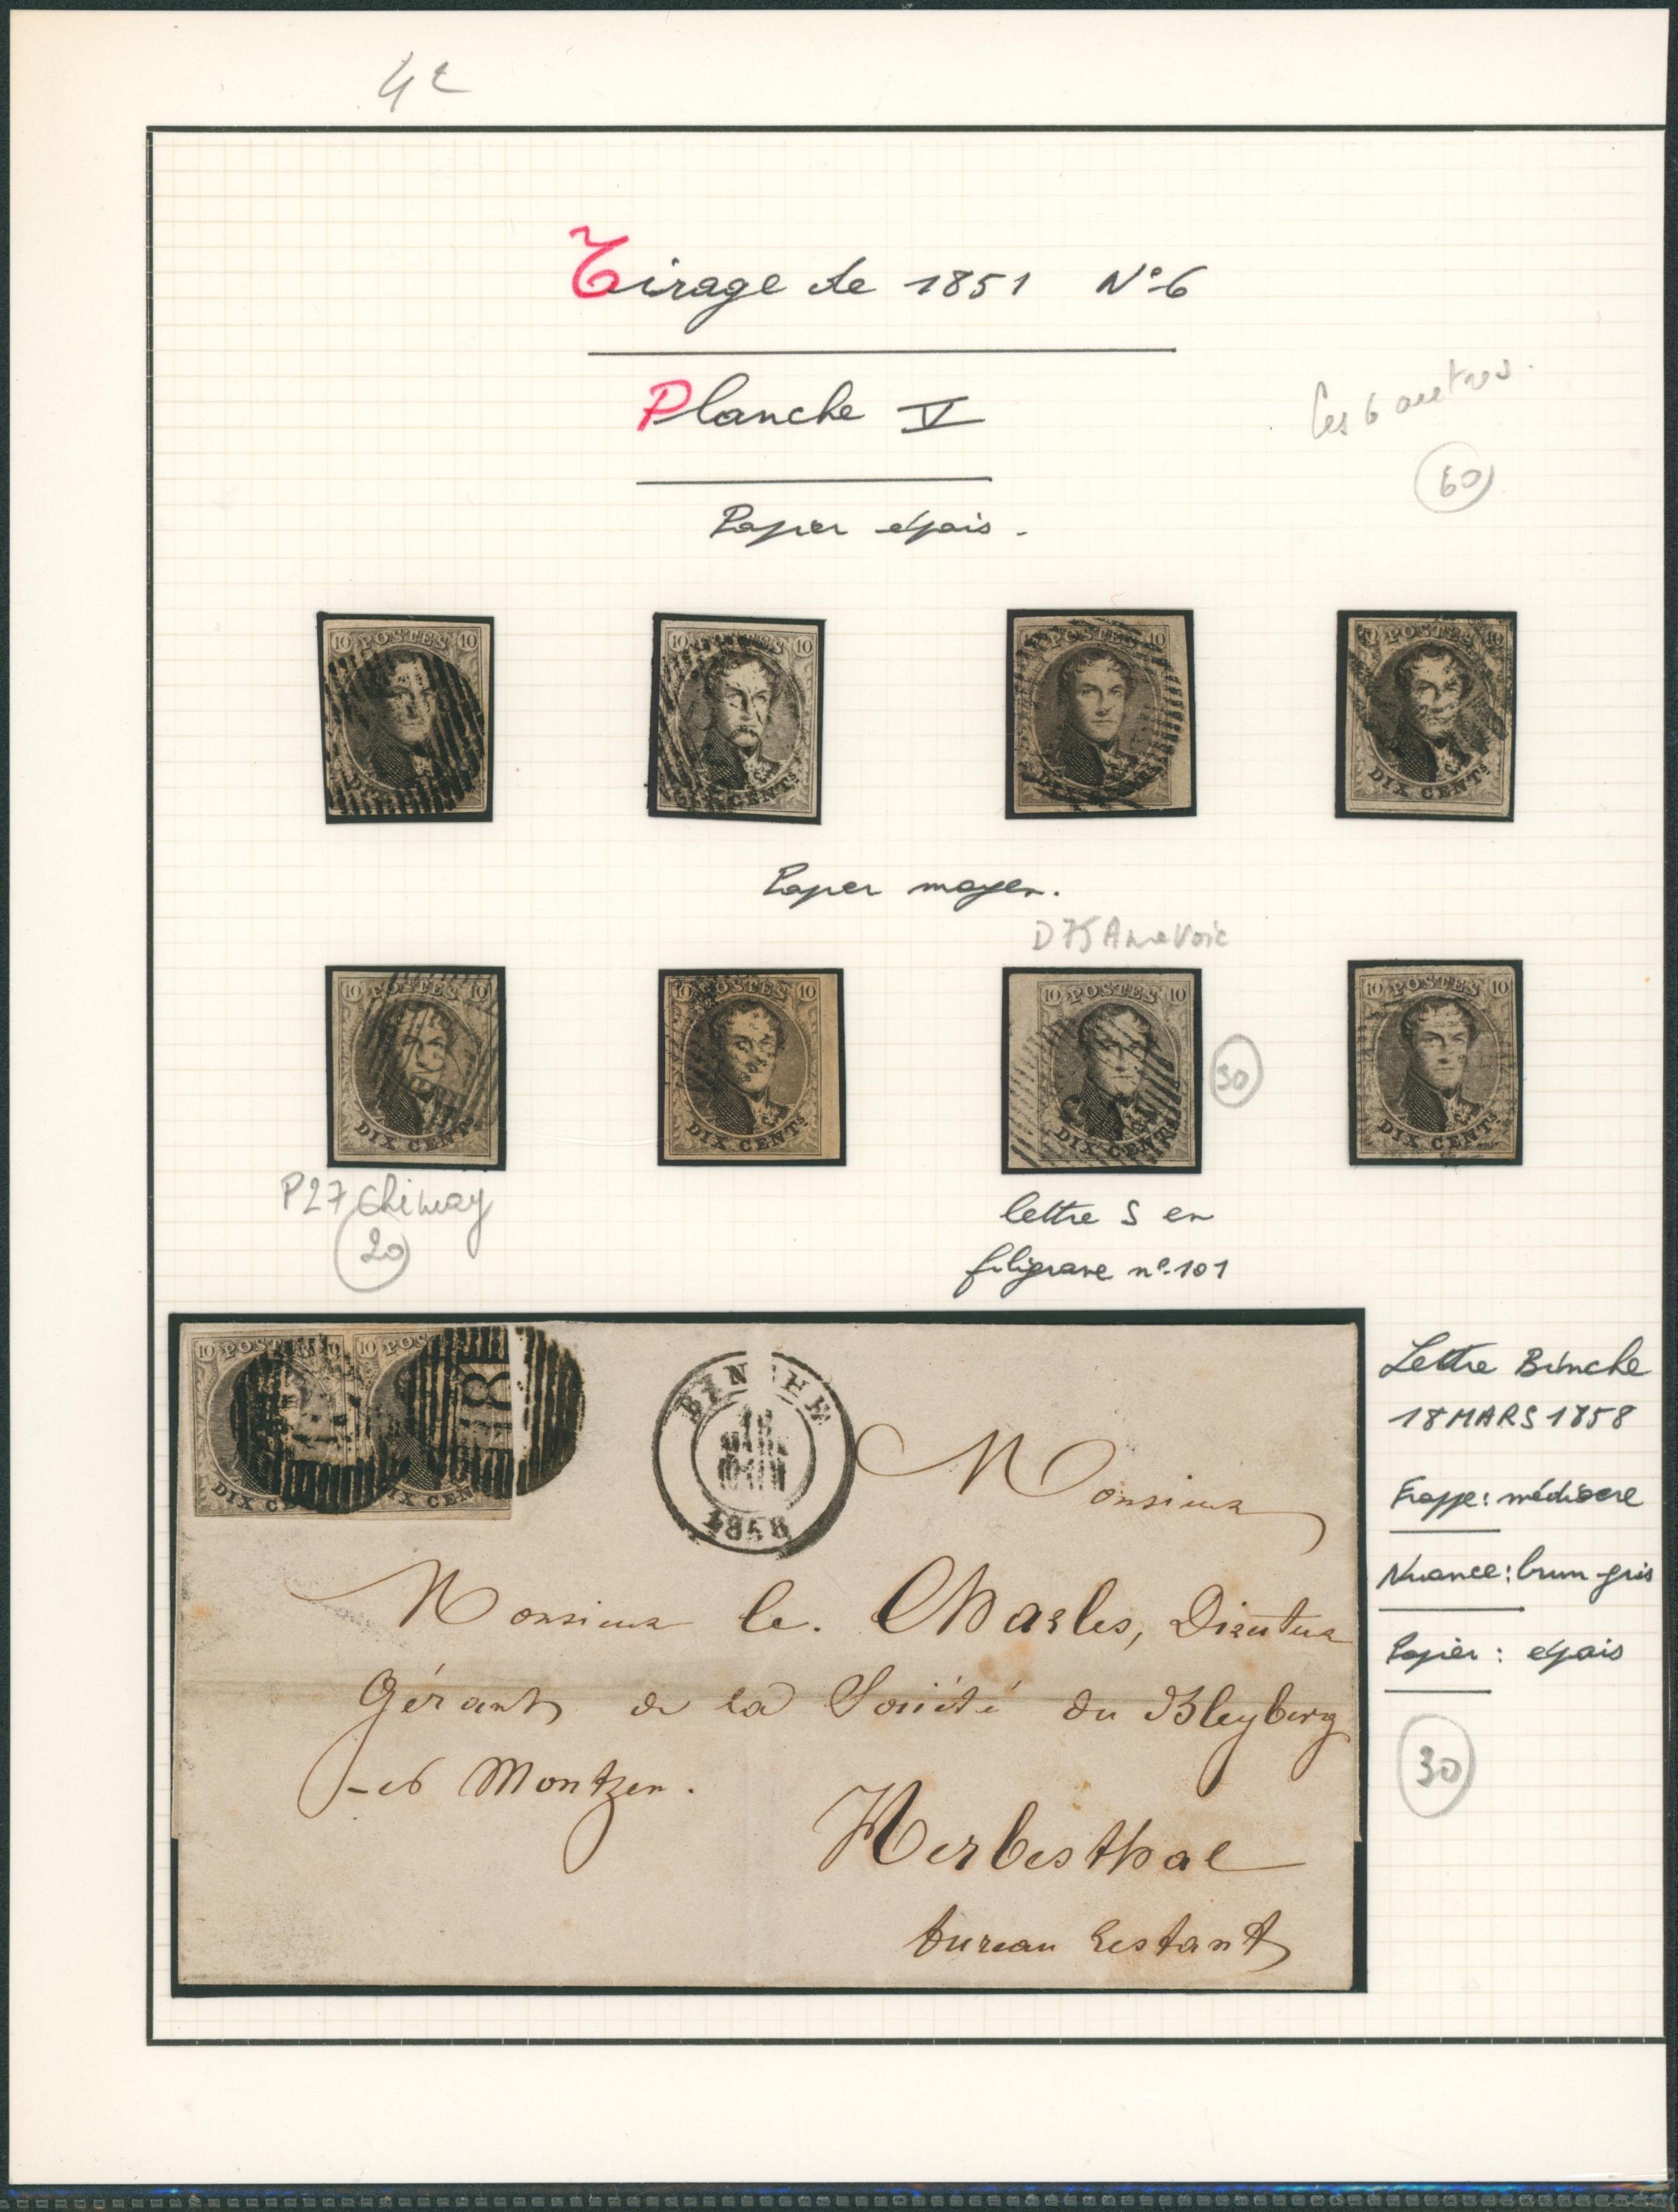 4e
Tirage de 1851 N°6
Planche V
Les 6 autres.
60
Papier épais.
10 POSTES 10
10 POSTES 10
DIX CENTS
10 POSTES 10
POSTES 10
DIX CENTS
Papier moyen.
D75 Annevoie
10 POSTES 10
DIX CENTS
10 POSTES 10
DIX CENTS
10 POSTES 10
DIX CENTS
10 POSTES 10
DIX CENTS
30
P27 Chimay
20
lettre S en
filigrane n°.101
10 POSTES 10 POS
DIX CE IX CEN
BINCHE
18
MARS
1858
Monsieur
Monsieur le. Charles, Directeur
Gérant de la Société du Bleyberg
-es Montzen.
Herbesthal
bureau restant
Lettre Binche
18 MARS 1858
Frappe: médiocre
Nuance: brun-gris
Papier: épais
30